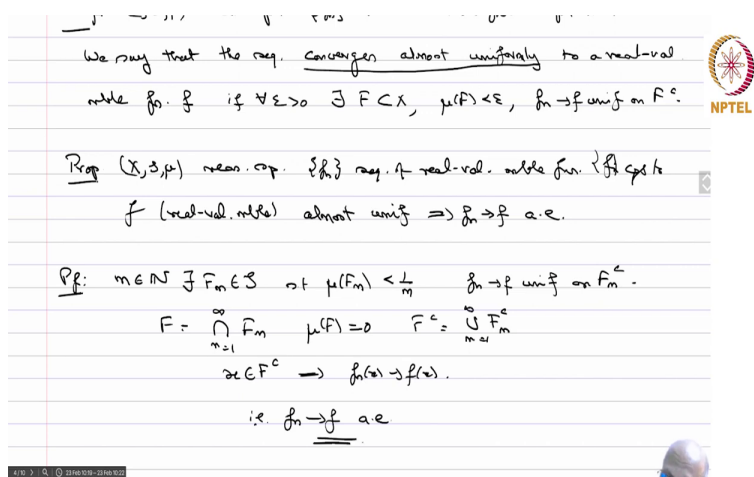 We say that the seq. converges almost uniformly to a real-val
mble fn. f if ∀ε>0 ∃ F⊂X, μ(F)<ε, fn→f unif on F^c.
NPTEL
Prop (X,S,μ) meas. sp. {fn} seq. of real-val. mble fns. {fn} cgs to
f (real-val. mble) almost unif ⇒ fn→f a.e.
Pf: m∈ℕ ∃ Fm∈S st μ(Fm) < 1/m fn→f unif on Fm^c.
F = ∩_{m=1}^∞ Fm μ(F)=0 F^c = ∪_{m=1}^∞ Fm^c
x∈F^c → fn(x)→f(x).
i.e. fn→f a.e
4/10 23 Feb 10:18–23 Feb 10:22